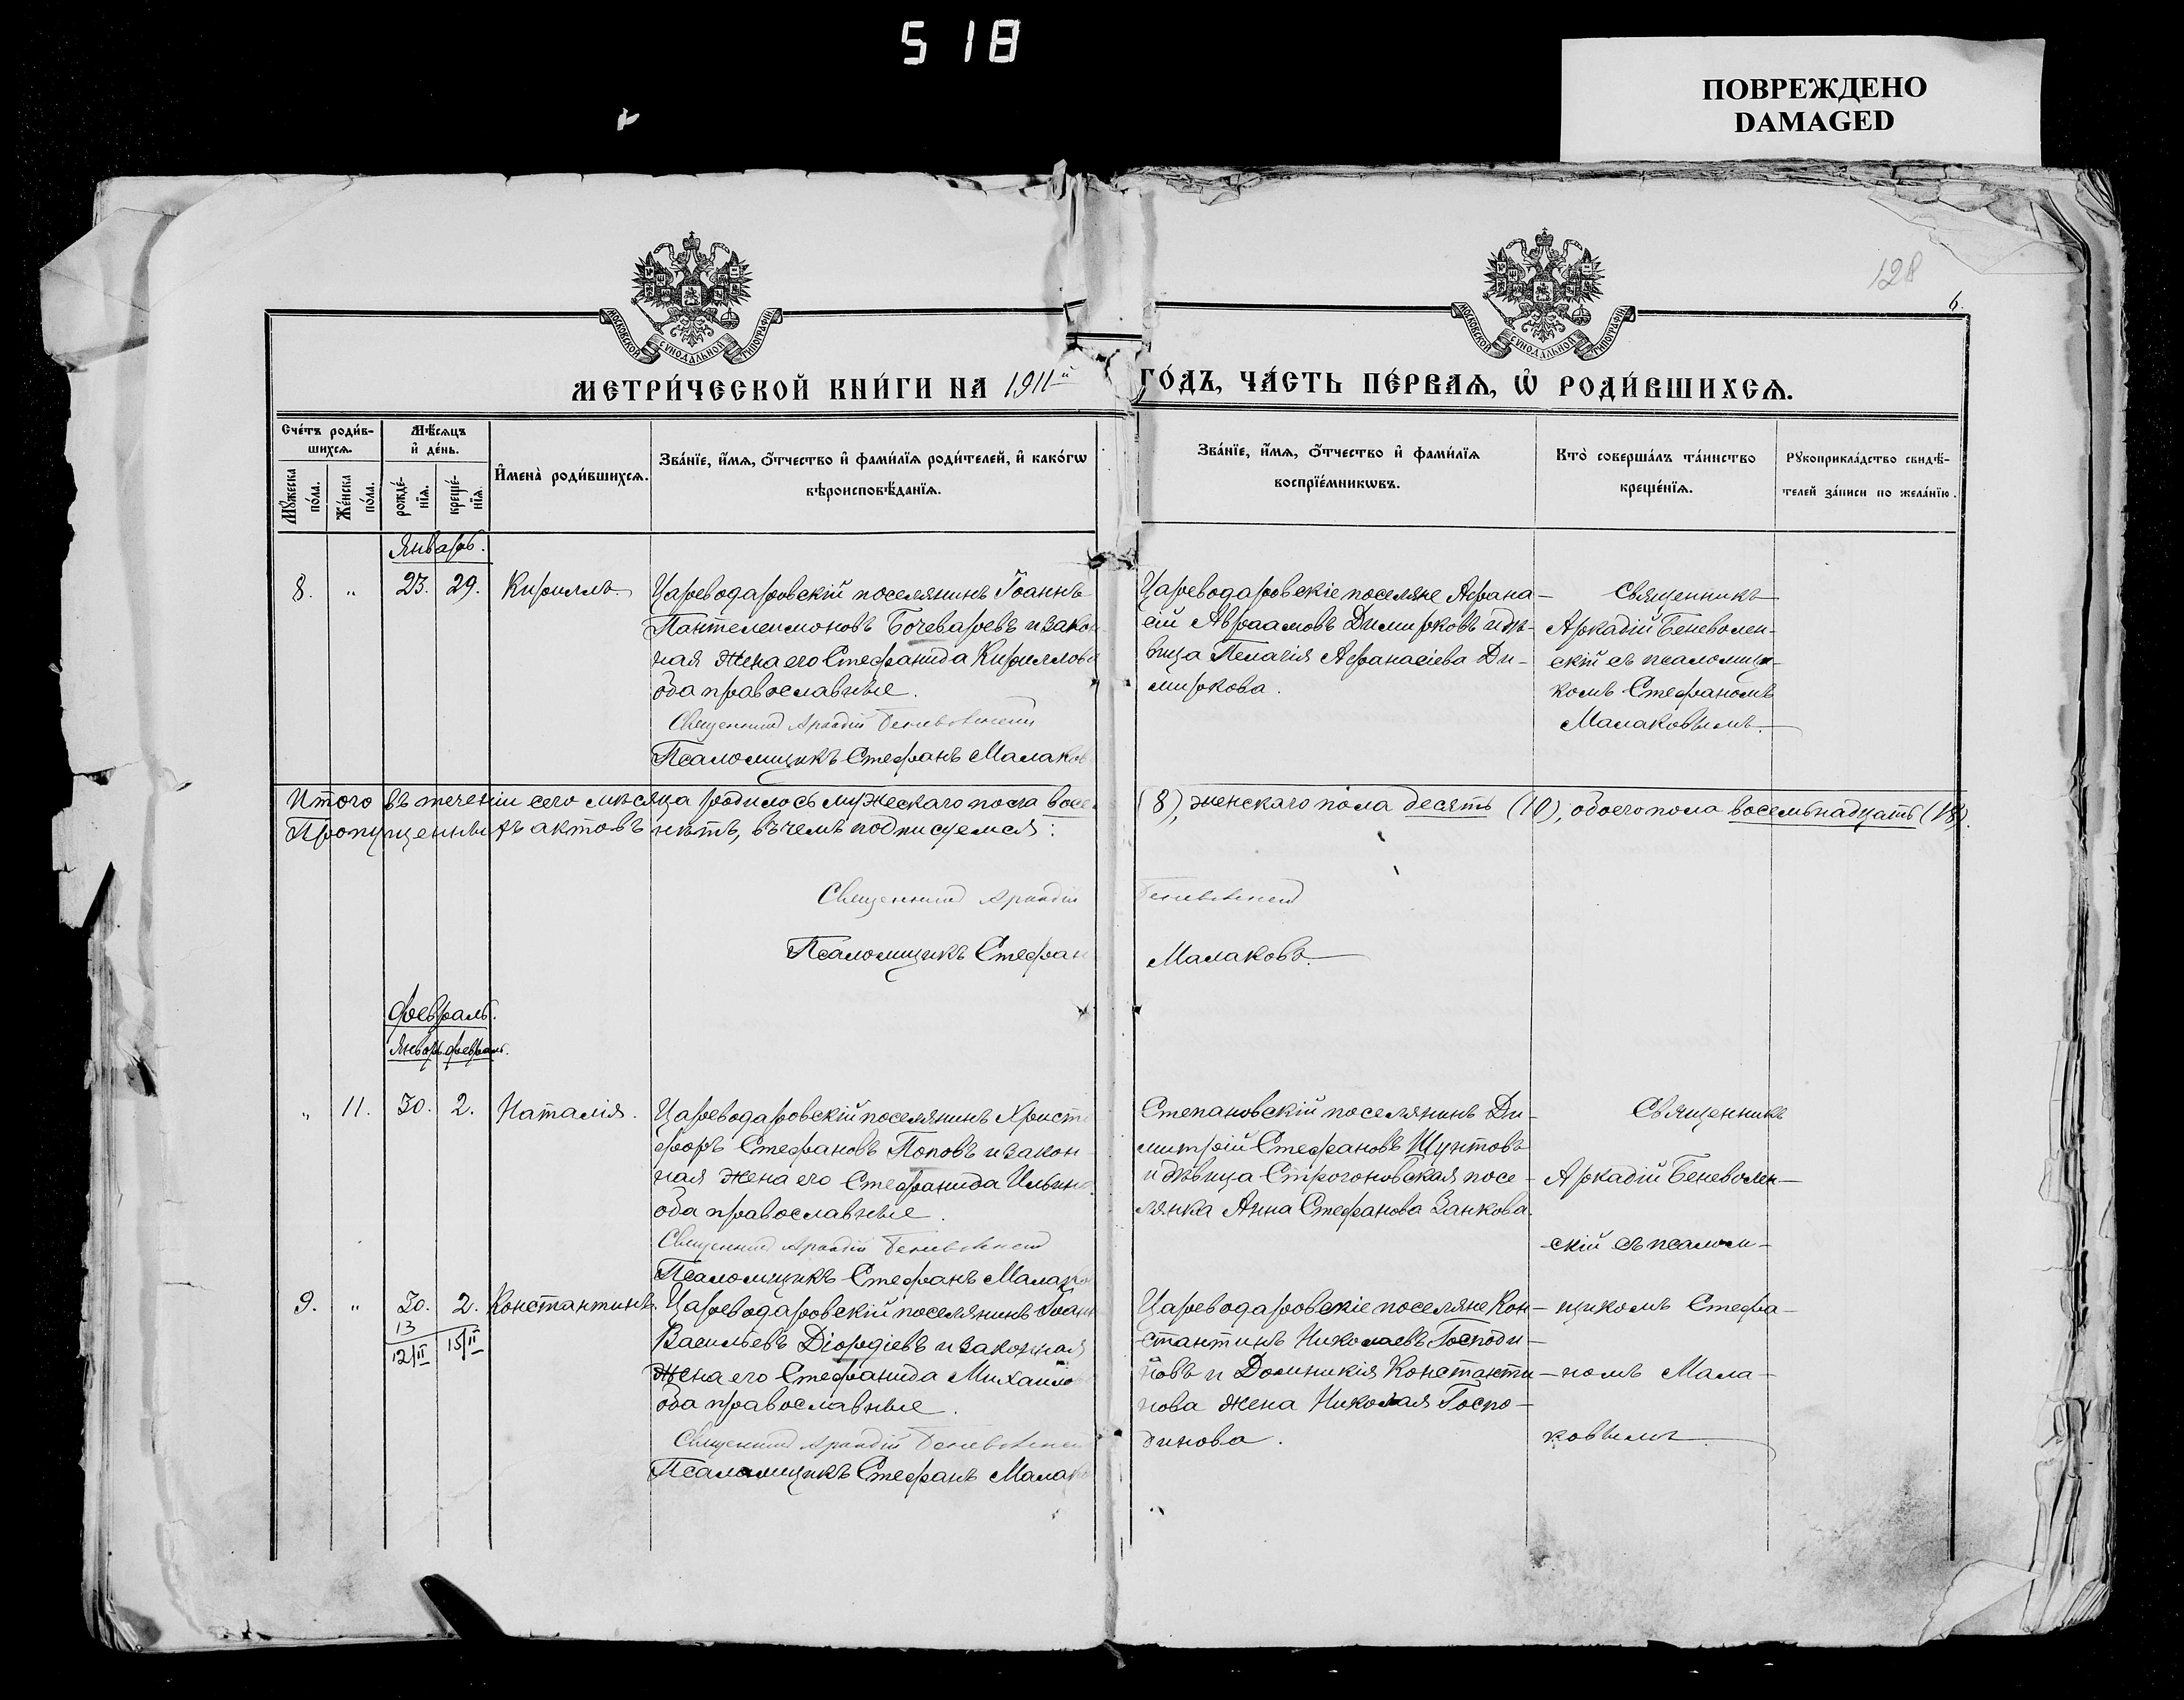 518
ПОВРЕЖДЕНО
DAMAGED
128
6.
МОСКОВСКОЙ СѴНОДАЛЬНОЙ ТИПОГРАФІИ
МОСКОВСКОЙ СѴНОДАЛЬНОЙ ТИПОГРАФІИ
МЕТРИ́ЧЕСКОЙ КНИ́ГИ НА 1911й ГО́ДЪ, ЧА́СТЬ ПЕ́РВАѦ, Ѡ РОДИ́ВШИХСѦ.
Сче́тъ роди́в-
шихсѧ.
Мꙋ́жеска
по́ла.
Же́нска
по́ла.
Мѣ́сѧцъ
и҆ де́нь.
рожде́-
нїѧ.
креще́-
нїѧ.
И҆мена̀ роди́вшихсѧ.
Зва́нїе, и҆́мѧ, ѻ҆́тчество и҆ фами́лїѧ роди́телей, и҆ како́гѡ
вѣроисповѣ́данїѧ.
Зва́нїе, и҆́мѧ, ѻ҆́тчество и҆ фами́лїѧ
воспрїе́мникѡвъ.
Кто̀ соверша́лъ та́инство
креще́нїѧ.
Рꙋкоприкла́дство свидѣ́-
телей за́писи по жела́нїю.
Январь.
8. „ 23. 29. Кириллъ.
Цареводаровскій поселянинъ Іоаннъ
Пантелеимоновъ Бочеваровъ и закон
ная жена его Стефанида Кириллова
оба православные.
Священникъ Аркадій Беневоленскій
Псаломщикъ Стефанъ Малаков
Цареводаровскіе поселяне Афана-
сій Авраамовъ Димирковъ и дѣ-
вица Пелагія Афанасіева Ди-
миркова.
Священникъ
Аркадій Беневолен-
скій съ псаломщи-
комъ Стефаномъ
Малаковымъ.
Итого въ теченіи сего мѣсяца родилось мужескаго пола восе (8), женскаго пола десять (10), обоего пола восемьнадцать (18).
Пропущенныхъ актовъ нѣтъ, въ чемъ подписуемся:
Священникъ Аркадій Беневоленскій
Псаломщикъ Стефан Малаковъ.
Февраль.
Январь. Февраль.
„ 11. 30. 2. Наталія.
Цареводаровскій поселянинъ Христо
форъ Стефановъ Поповъ и закон
ная жена его Стефанида Ильина
оба православные.
Священникъ Аркадій Беневоленскій
Псаломщикъ Стефанъ Малако
Степановскій поселянинъ Ди-
митрій Стефановъ Щунтовъ
и дѣвица Строгоновская посе-
лянка Анна Стефанова Занкова.
Священникъ
Аркадій Беневолен-
скій съ псалом-
9. „ 30. 2. Константинъ.
13
12/II 15/II
Цареводаровскій поселянинъ Іоанн
Васильевъ Діордіевъ и законная
жена его Стефанида Михаилов
оба православные.
Священникъ Аркадій Беневоленскій
Псаломщикъ Стефанъ Малако
Цареводаровскіе поселяне Кон-
стантинъ Николаевъ Господи-
новъ и Домникія Константи-
нова жена Николая Госпо-
динова.
щикомъ Стефа-
номъ Мала-
ковымъ